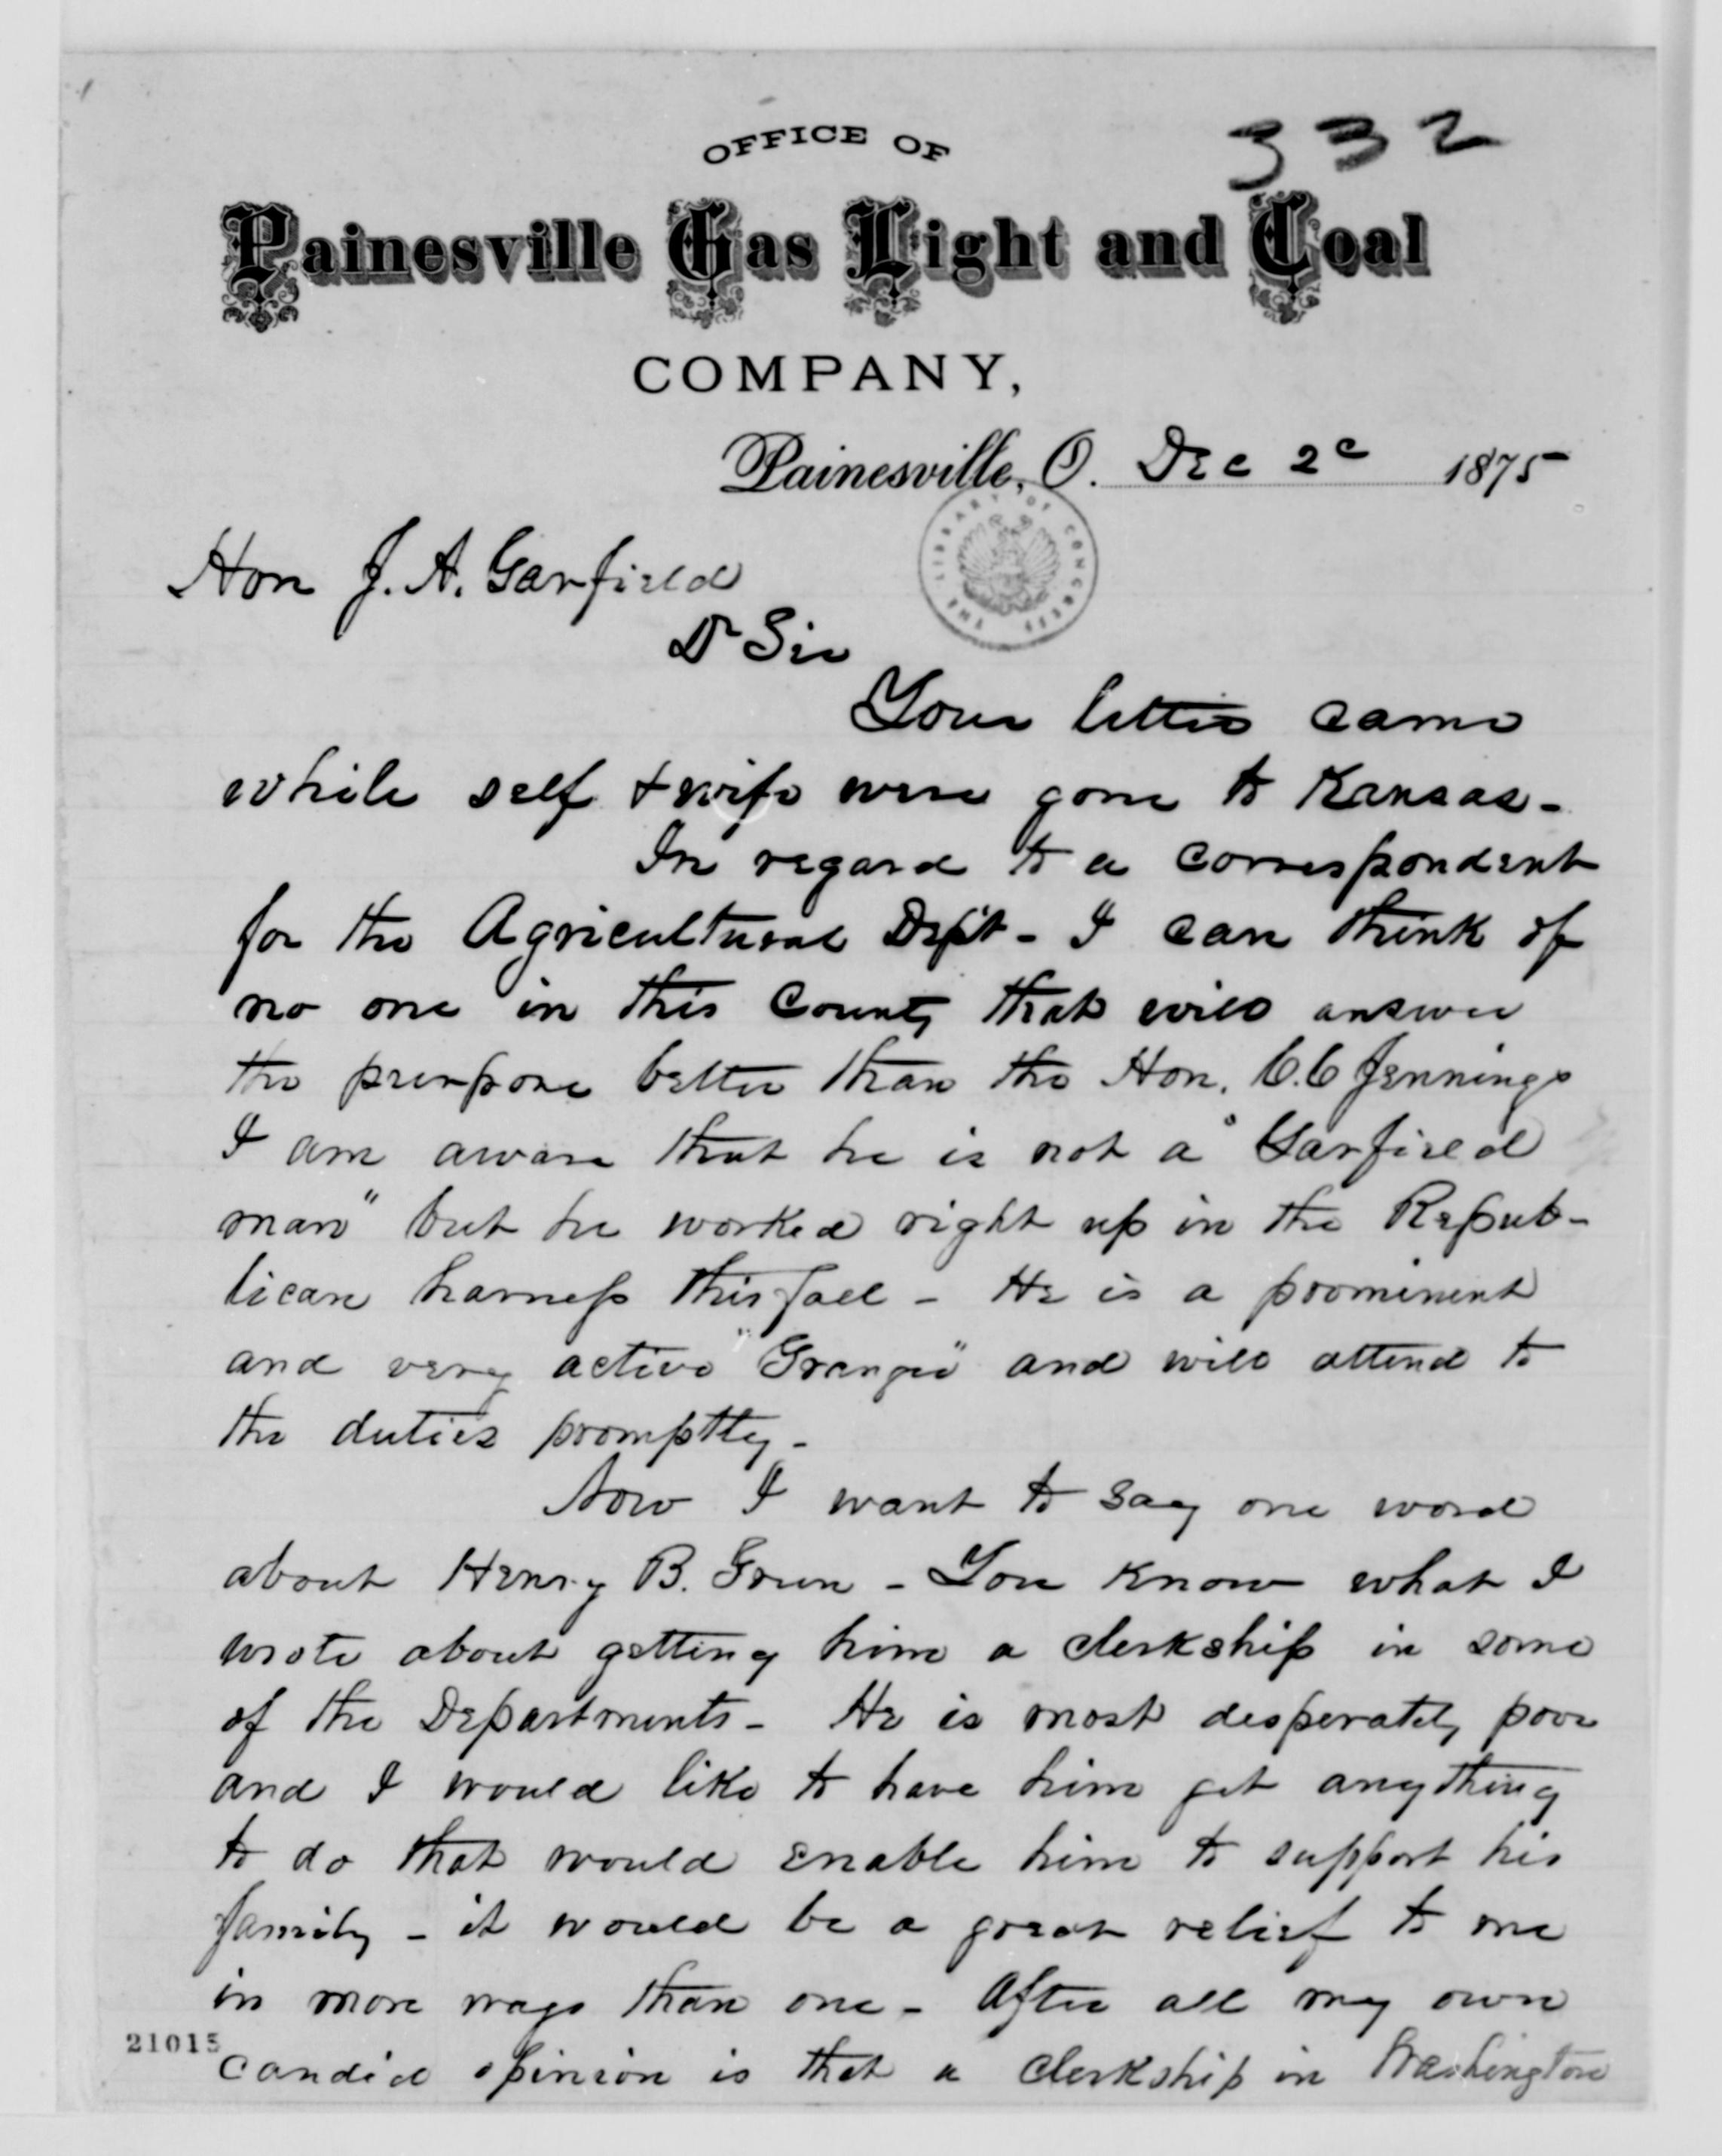 332
OFFICE OF
Painesville Gas Light and Coal
COMPANY,
Painesville, O. Dec 2d 1875
THE LIBRARY OF CONGRESS
Hon J. A. Garfield
Dr Sir
Your letter came
while self & wife were gone to Kansas -
In regard to a correspondent
for the Agricultural Dep't - I can think of
no one in this County that will answer
the purpose better than the Hon. C. C Jennings
I am aware that he is not a "Garfield
man" but he worked right up in the Repub-
lican harness this fall - He is a prominent
and very active "Granger" and will attend to
the duties promptly -
Now I want to say one word
about Henry B. Green - You know what I
wrote about getting him a clerkship in some
of the Departments - He is most desperately poor
and I would like to have him get anything
to do that would enable him to support his
family - it would be a great relief to me
in more ways than one - After all my own
21015
candid opinion is that a clerkship in Washington